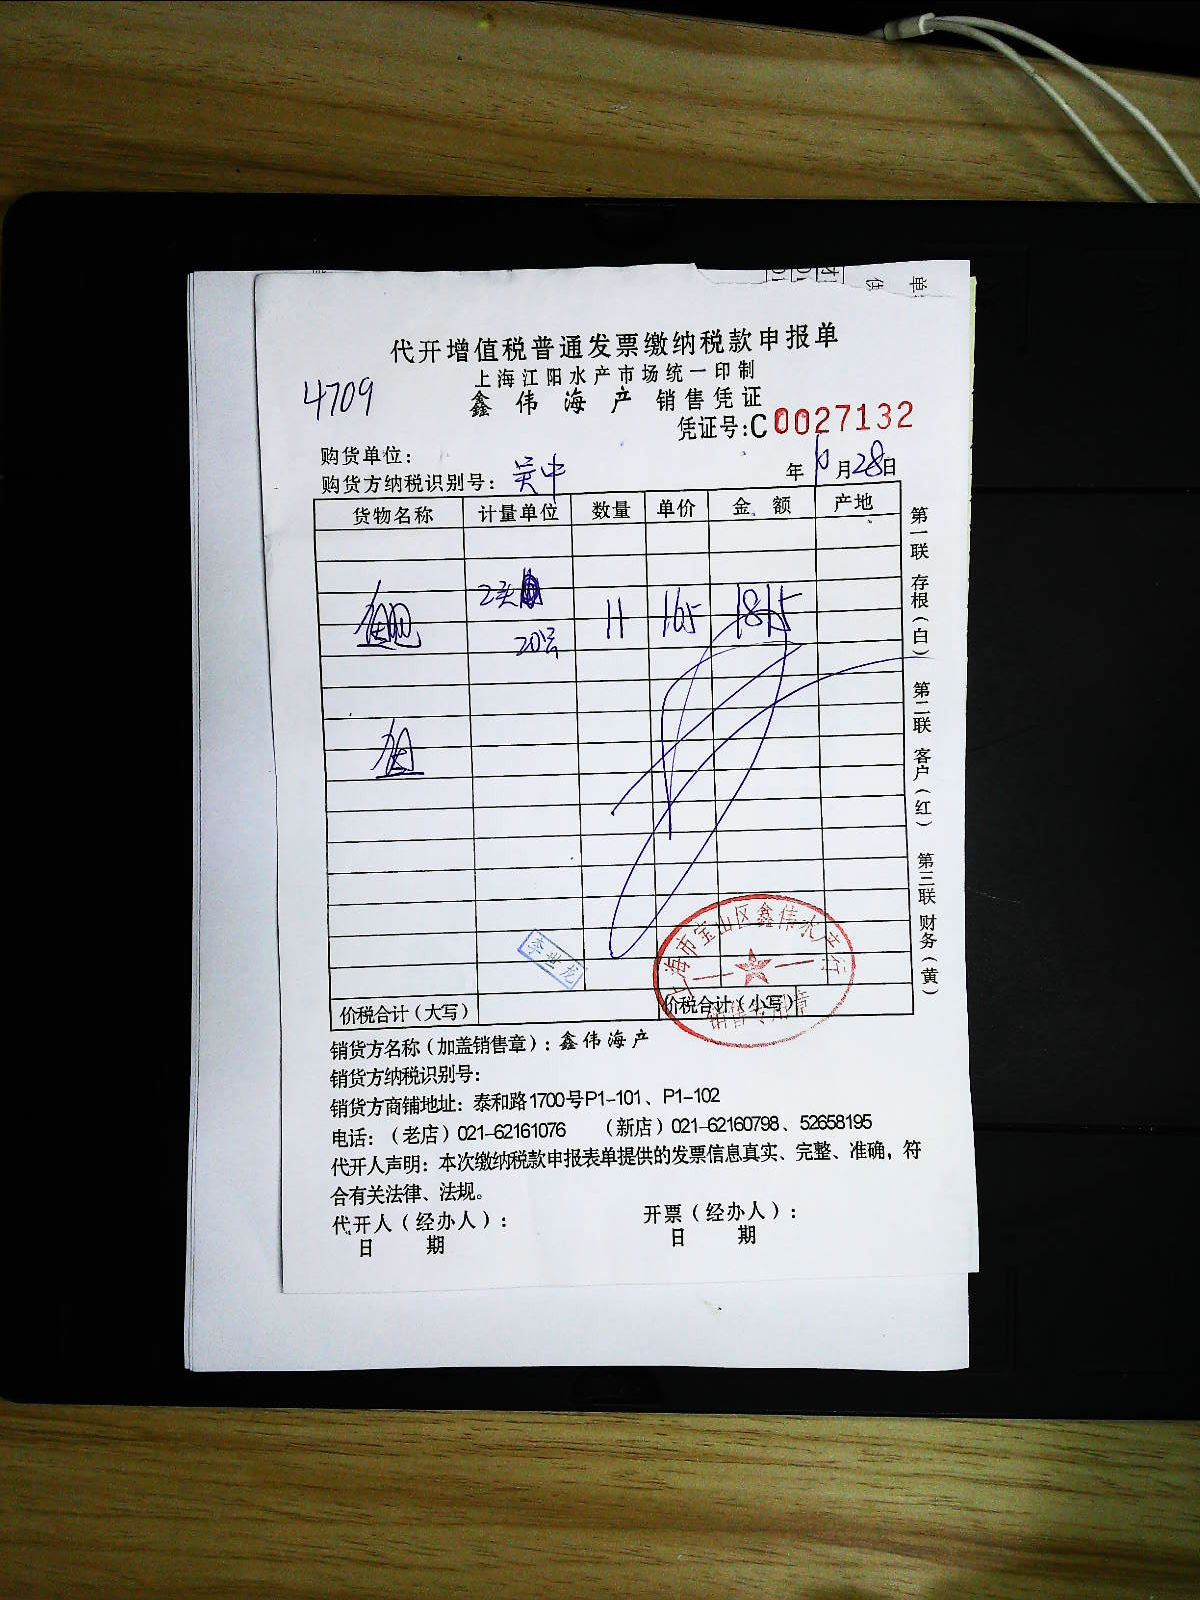 代开增值税普通发票缴纳税款申报单
上海江阳水产市场统一印制
4709
鑫伟海产 销售凭证
凭证号:C0027132
购货单位:
购货方纳税识别号: 吴中
年10月28日
货物名称 计量单位 数量 单价 金额 产地
2头
鲍 11 165 1815
20
第一联 存根(白)
第二联 客户(红)
第三联 财务(黄)
李世龙
上海市宝山区鑫伟水产行
销售专用章
价税合计(大写) 价税合计(小写)
销货方名称(加盖销售章):鑫伟海产
销货方纳税识别号:
销货方商铺地址:泰和路1700号P1-101、P1-102
电话:(老店)021-62161076 (新店)021-62160798、52658195
代开人声明:本次缴纳税款申报表单提供的发票信息真实、完整、准确,符
合有关法律、法规。
代开人(经办人): 开票(经办人):
日期 日期